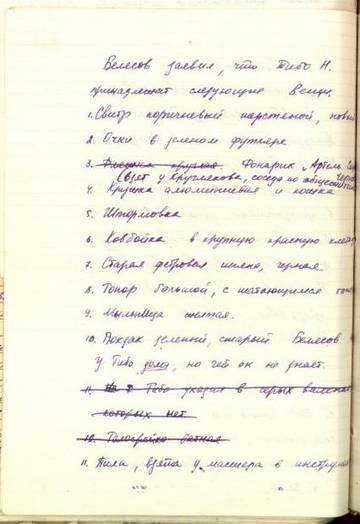 Белесов заявил, что Тибо Н.
принадлежат следующие вещи:
1. Свитр коричневый шерстеной, новый
2. Очки в зеленом футляре
3. Фляжка круглая. Фонарик „Артель
Свет у Кругликова, соседа по общежитию
4. Кружка алюминиевая и ложка
5. Штормовка
6. Ковбойка в крупную красную клетку
7. Старая фетровая шляпа, черная.
8. Топор большой, с шатающимся топ
9. Мыльница желтая.
10. Рюкзак зеленый, старый Белесов
у Тибо дома, но чей он не знает.
11. Тибо уходил в серых валенках
которых нет
12. Телогрейка ватная
11. Пила, взята у мастера в инструмен